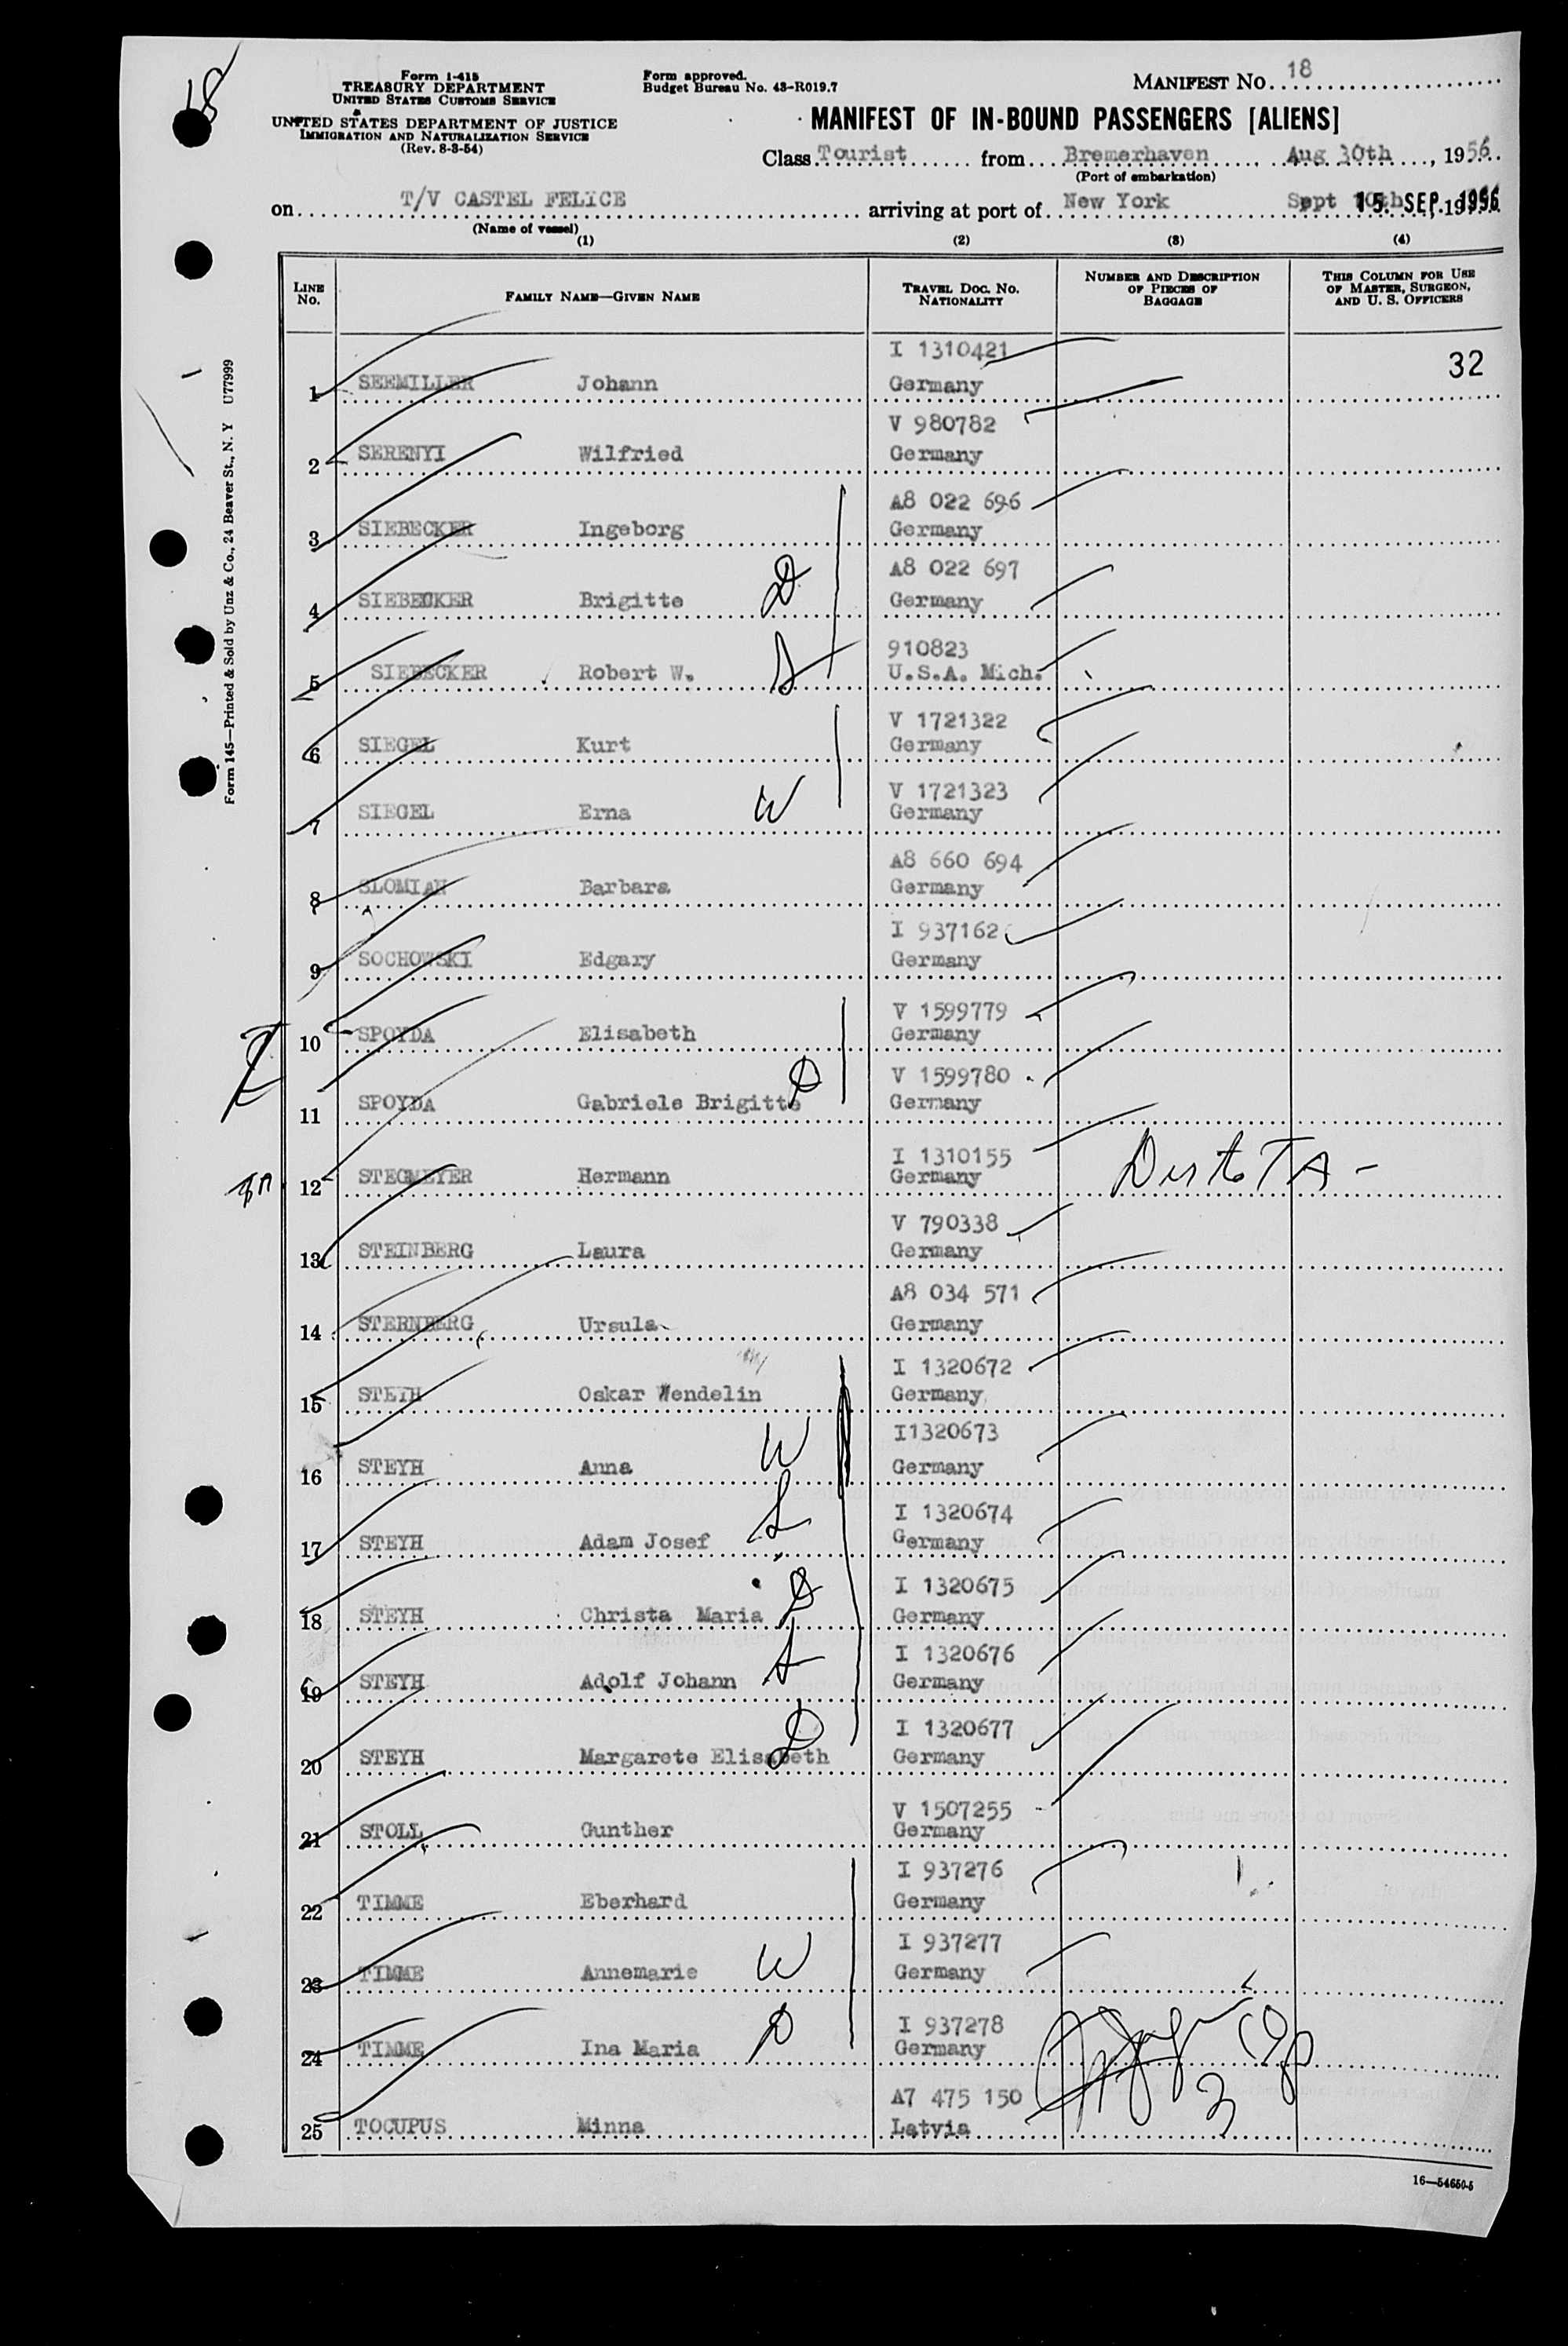 18
Form I-415
TREASURY DEPARTMENT
UNITED STATES CUSTOMS SERVICE
UNITED STATES DEPARTMENT OF JUSTICE
IMMIGRATION AND NATURALIZATION SERVICE
(Rev. 8-3-54)
Form approved.
Budget Bureau No. 43-R019.7
MANIFEST NO. 18
MANIFEST OF IN-BOUND PASSENGERS [ALIENS]
Class Tourist from Bremerhaven Aug 30th, 1956
(Port of embarkation)
on T/V CASTEL FELICE arriving at port of New York Sept 10th 15. SEP. 1956
(Name of vessel)
(1) (2) (3) (4)
LINE NO. FAMILY NAME—GIVEN NAME TRAVEL DOC. NO. NATIONALITY NUMBER AND DESCRIPTION OF PIECES OF BAGGAGE THIS COLUMN FOR USE OF MASTER, SURGEON, AND U. S. OFFICERS
I 1310421 32
1 SEEMILLER Johann Germany
V 980782
2 SERENYI Wilfried Germany
A8 022 696
3 SIEBECKER Ingeborg Germany
A8 022 697
4 SIEBECKER Brigitte D Germany
910823
5 SIEBECKER Robert W. S U.S.A. Mich.
V 1721322
6 SIEGEL Kurt Germany
V 1721323
7 SIEGEL Erna W Germany
A8 660 694
8 SLOMIAN Barbara Germany
I 937162
9 SOCHOWSKI Edgary Germany
V 1599779
10 SPOYDA Elisabeth Germany
V 1599780
11 SPOYDA Gabriele Brigitte D Germany
I 1310155
12 STEGMEYER Hermann Germany
V 790338
13 STEINBERG Laura Germany
A8 034 571
14 STERNBERG Ursula Germany
I 1320672
15 STEYH Oskar Wendelin Germany
I1320673
16 STEYH Anna W Germany
I 1320674
17 STEYH Adam Josef S Germany
I 1320675
18 STEYH Christa Maria D Germany
I 1320676
19 STEYH Adolf Johann S Germany
I 1320677
20 STEYH Margarete Elisabeth D Germany
V 1507255
21 STOLL Gunther Germany
I 937276
22 TIMME Eberhard Germany
I 937277
23 TIMME Annemarie W Germany
I 937278
24 TIMME Ina Maria D Germany
A7 475 150
25 TOCUPUS Minna Latvia
16—54650-5
Form 145—Printed & Sold by Unz & Co., 24 Beaver St., N. Y U77999